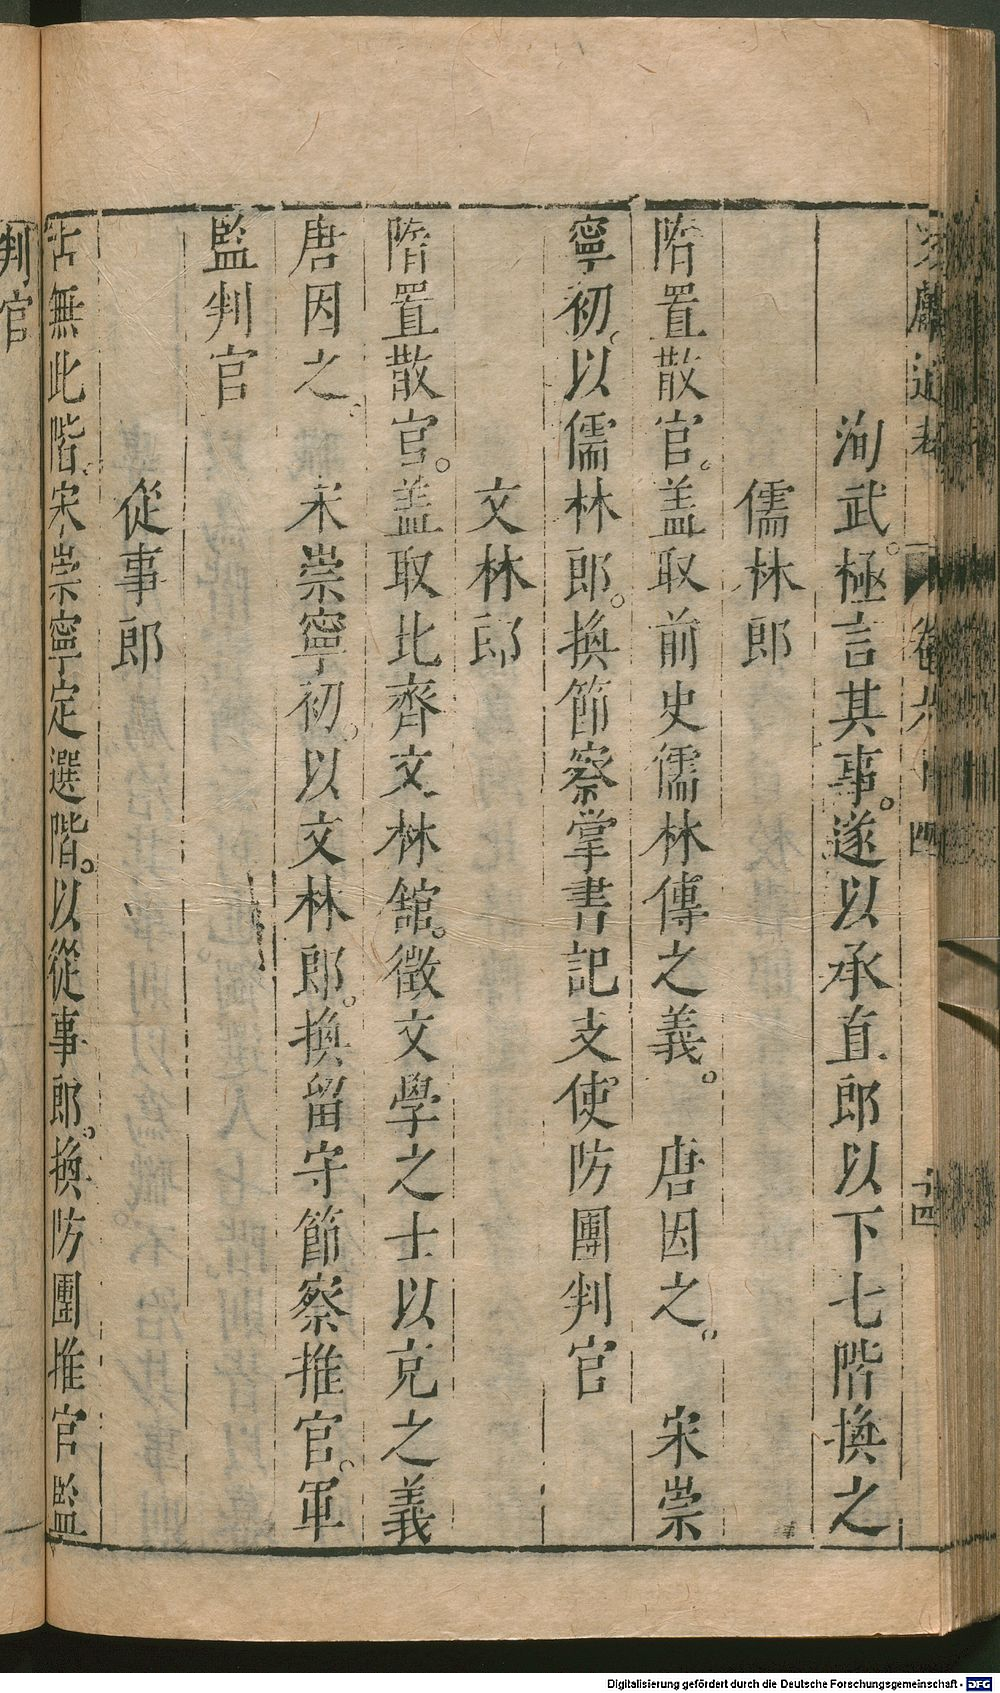 文獻通考 卷六十四 十四
洵武。極言其事。遂以承直郎以下七階換之
儒林郎
隋置散官。盖取前史儒林傳之義。 唐因之。 宋崇
寧初。以儒林郎。換節察掌書記支使防團判官
文林郎
隋置散官。盖取北齊文林舘。徵文學之士以充之義
唐因之。 宋崇寧初。以文林郎。換留守節察推官。軍
監判官
從事郎
古無此階。宋崇寧定選階。以從事郎。換防團推官監
判官
Digitalisierung gefördert durch die Deutsche Forschungsgemeinschaft - DFG